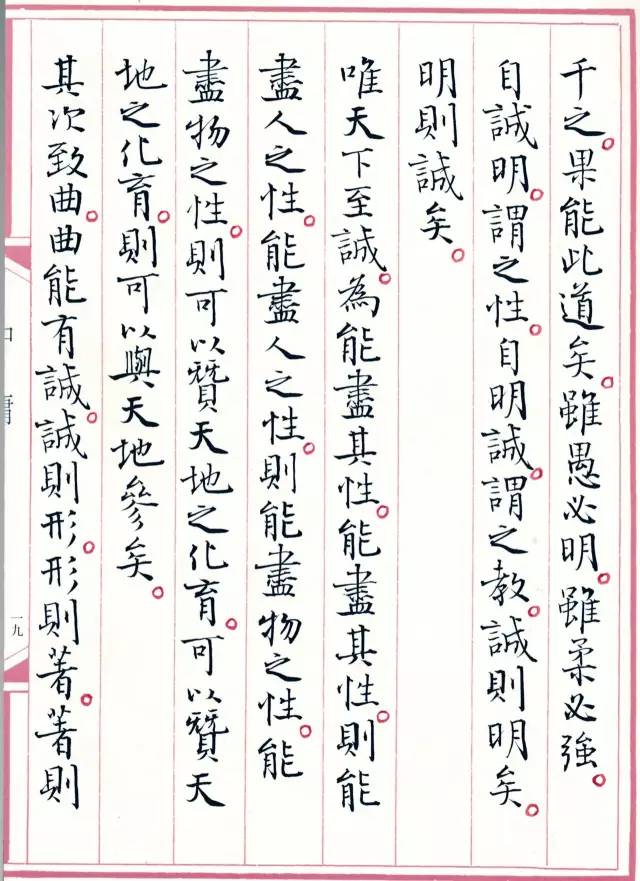 千之。果能此道矣。雖愚必明。雖柔必強。
自誠明。謂之性。自明誠。謂之教。誠則明矣。
明則誠矣。
唯天下至誠。為能盡其性。能盡其性。則能
盡人之性。能盡人之性。則能盡物之性。能
盡物之性。則可以贊天地之化育。可以贊天
地之化育。則可以與天地參矣。
其次致曲。曲能有誠。誠則形。形則著。著則
一九